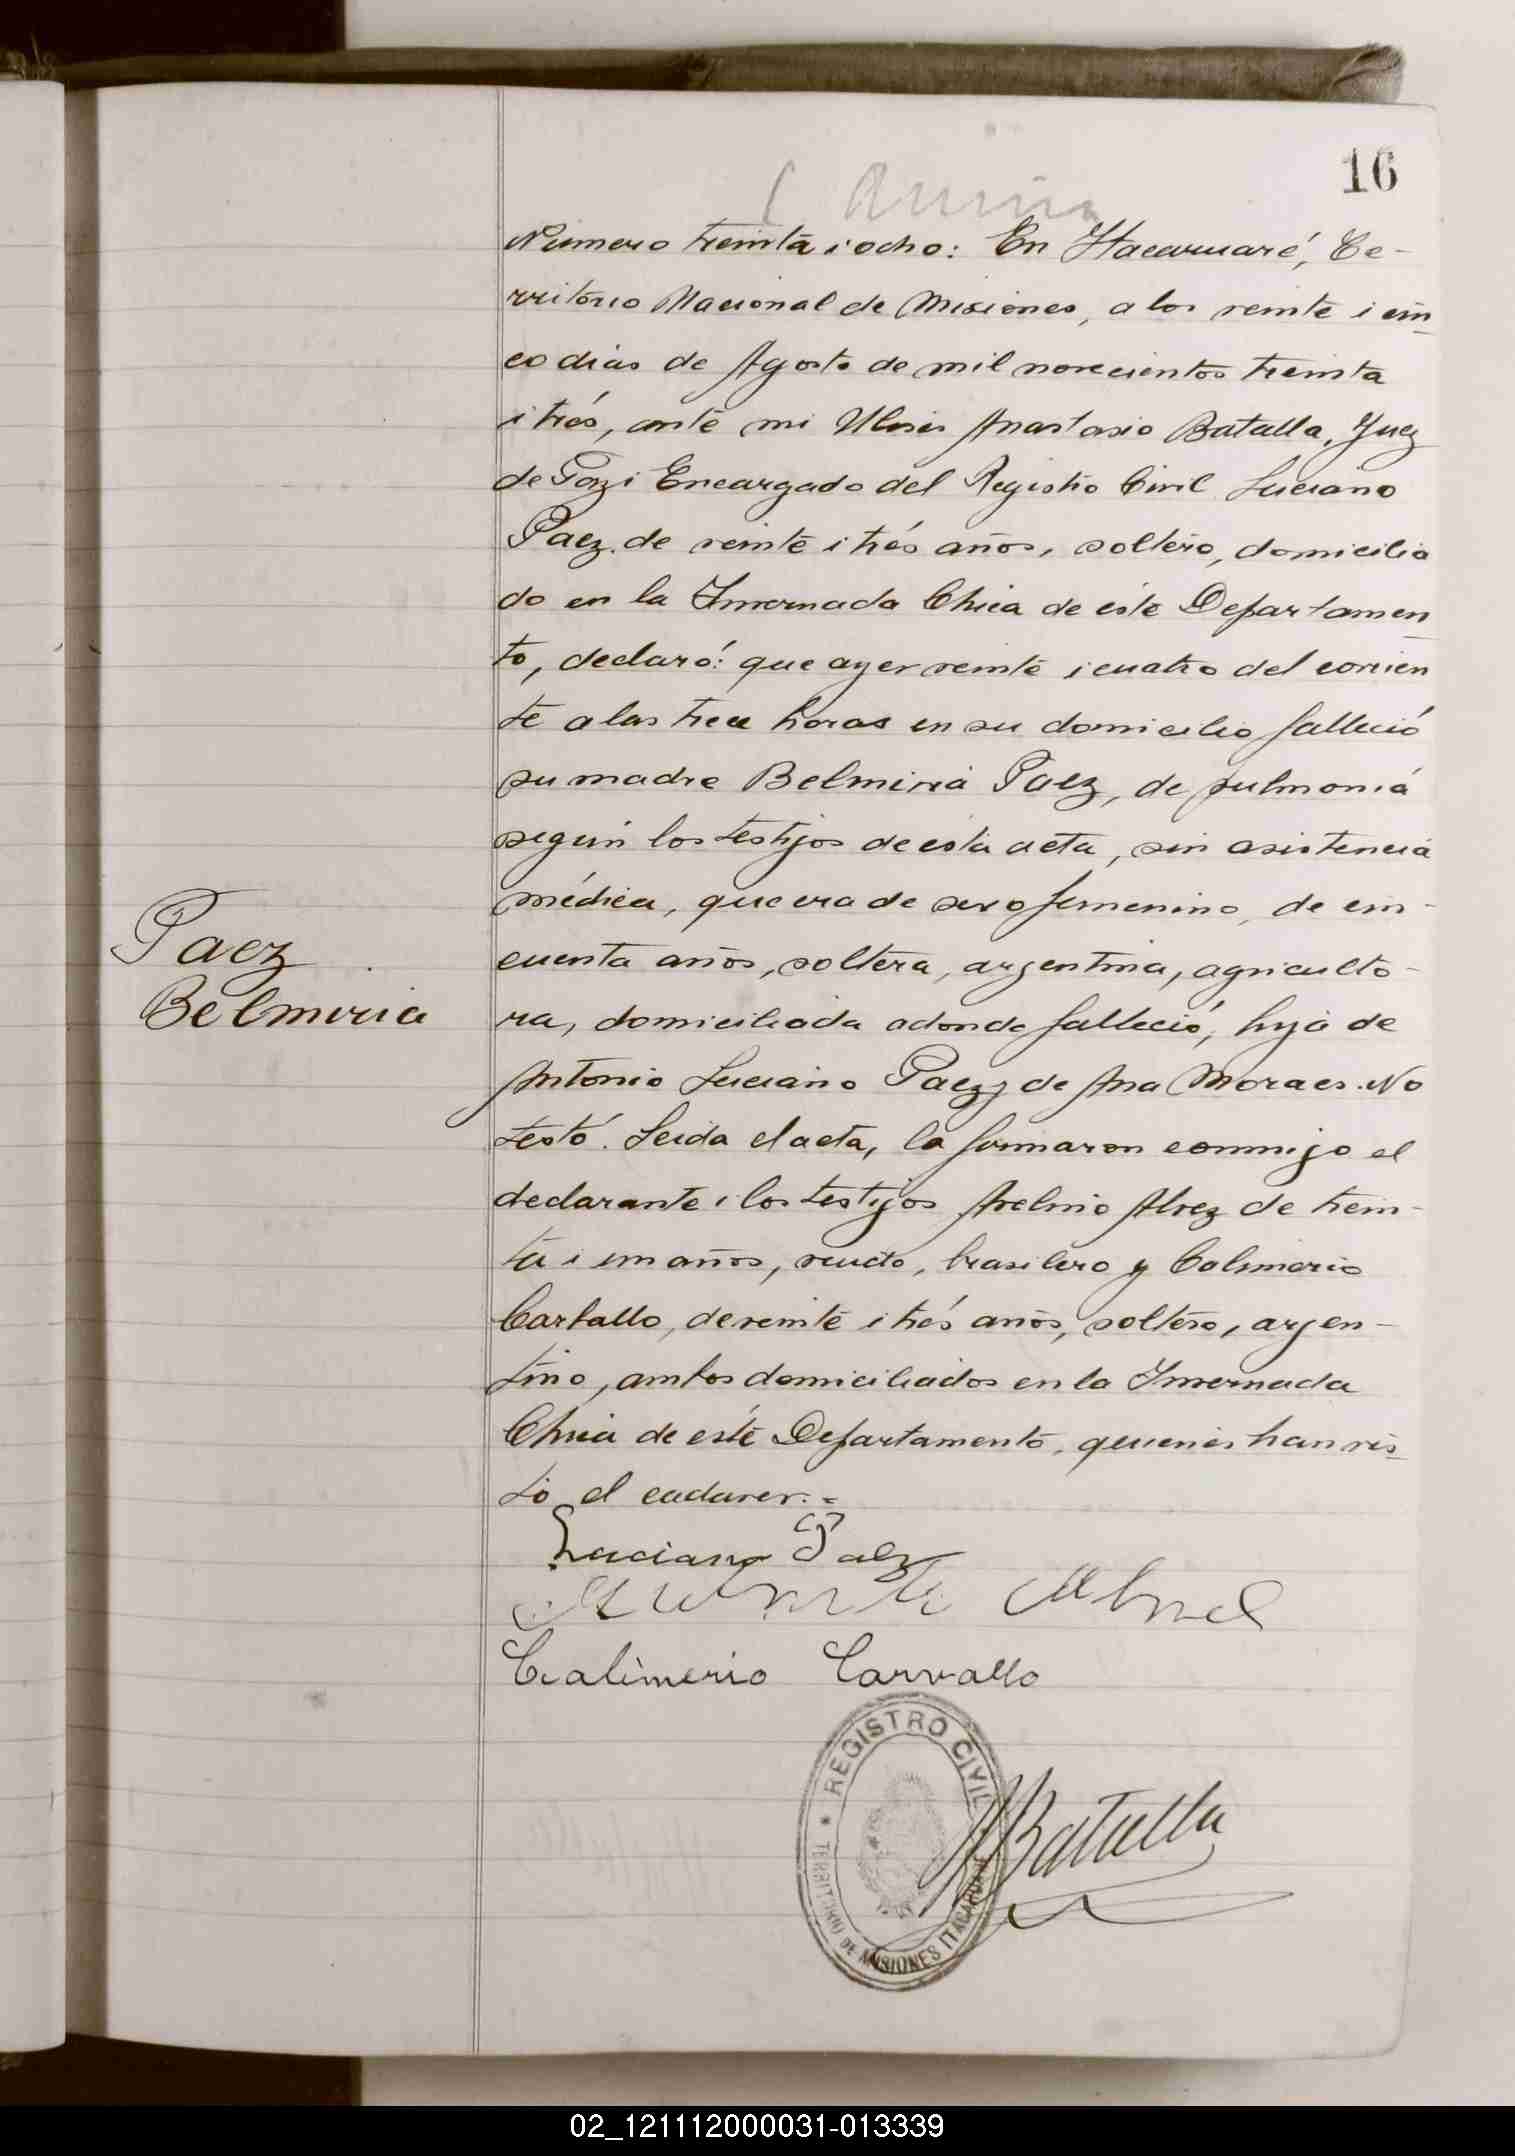 16
Número treinta i ocho: En Itacaruaré, Te-
rritorio Nacional de Misiones, a los veinte i cin
co dias de Agosto de mil novecientos treinta
i trés, ante mi Ulises Anastasio Batalla, Juez
de Paz i Encargado del Registro Civil Luciano
Paez, de veinte i trés años, soltero, domicilia
do en la Invernada Chica de éste Departamen
to, declaró: que ayer veinte i cuatro del corrien
te a las trece horas en su domicilio falleció
su madre Belmiria Paez, de pulmonía
según los testijos de ésta acta, sin asistencia
médica, que era de sexo femenino, de cin-
cuenta años, soltera, argentina, agriculto-
ra, domiciliada adonde falleció, hija de
Antonio Luciano Paez y de Ana Moraes. No
testó. Leida el acta, la firmaron conmigo el
declarante i los testijos Avelino Alvez de trein-
ta i un años, viudo, brasilero y Calimerio
Carballo, de veinte i trés años, soltero, arjen-
tino, ambos domiciliados en la Invernada
Chica de éste Departamento, quienes han vis
to el cadaver.=
Paez
Belmiria
Luciano Paez
Calimerio Carvallo
REGISTRO CIVIL
TERRITORIO DE MISIONES ITACARUARE
Batalla
02_121112000031-013339